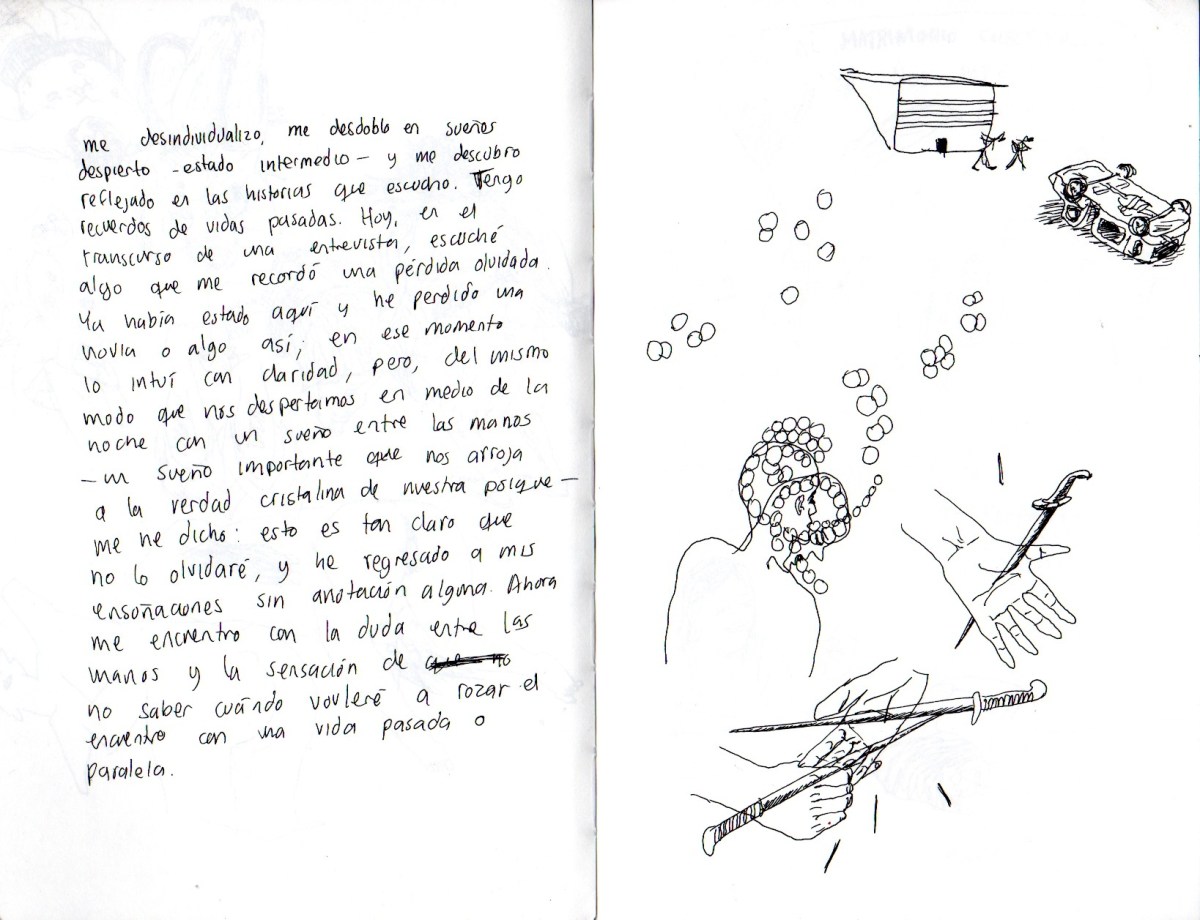 me desindividualizo, me desdoblo en sueños
despierto - estado intermedio - y me descubro
reflejado en las historias que escucho. Tengo
recuerdos de vidas pasadas. Hoy, en el
transcurso de una entrevista, escuché
algo que me recordó una pérdida olvidada.
Ya había estado aquí y he perdido una
novia o algo así; en ese momento
lo intuí con claridad, pero, del mismo
modo que nos despertamos en medio de la
noche con un sueño entre las manos
- un sueño importante que nos arroja
a la verdad cristalina de nuestra psique -
me he dicho: esto es tan claro que
no lo olvidaré, y he regresado a mis
ensoñaciones sin anotación alguna. Ahora
me encuentro con la duda entre las
manos y la sensación de
no saber cuándo vovleré a rozar el
encuentro con una vida pasada o
paralela.